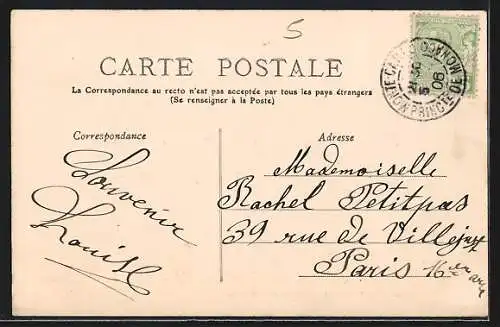 5
CARTE POSTALE
La Correspondance au recto n'est pas acceptée par tous les pays étrangers
(Se renseigner à la Poste)
Correspondance
Adresse
Souvenir
Louise
Mademoiselle
Rachel Petitpas
39 rue de Villejust
Paris 16
MONACO
PRINCTE DE
06